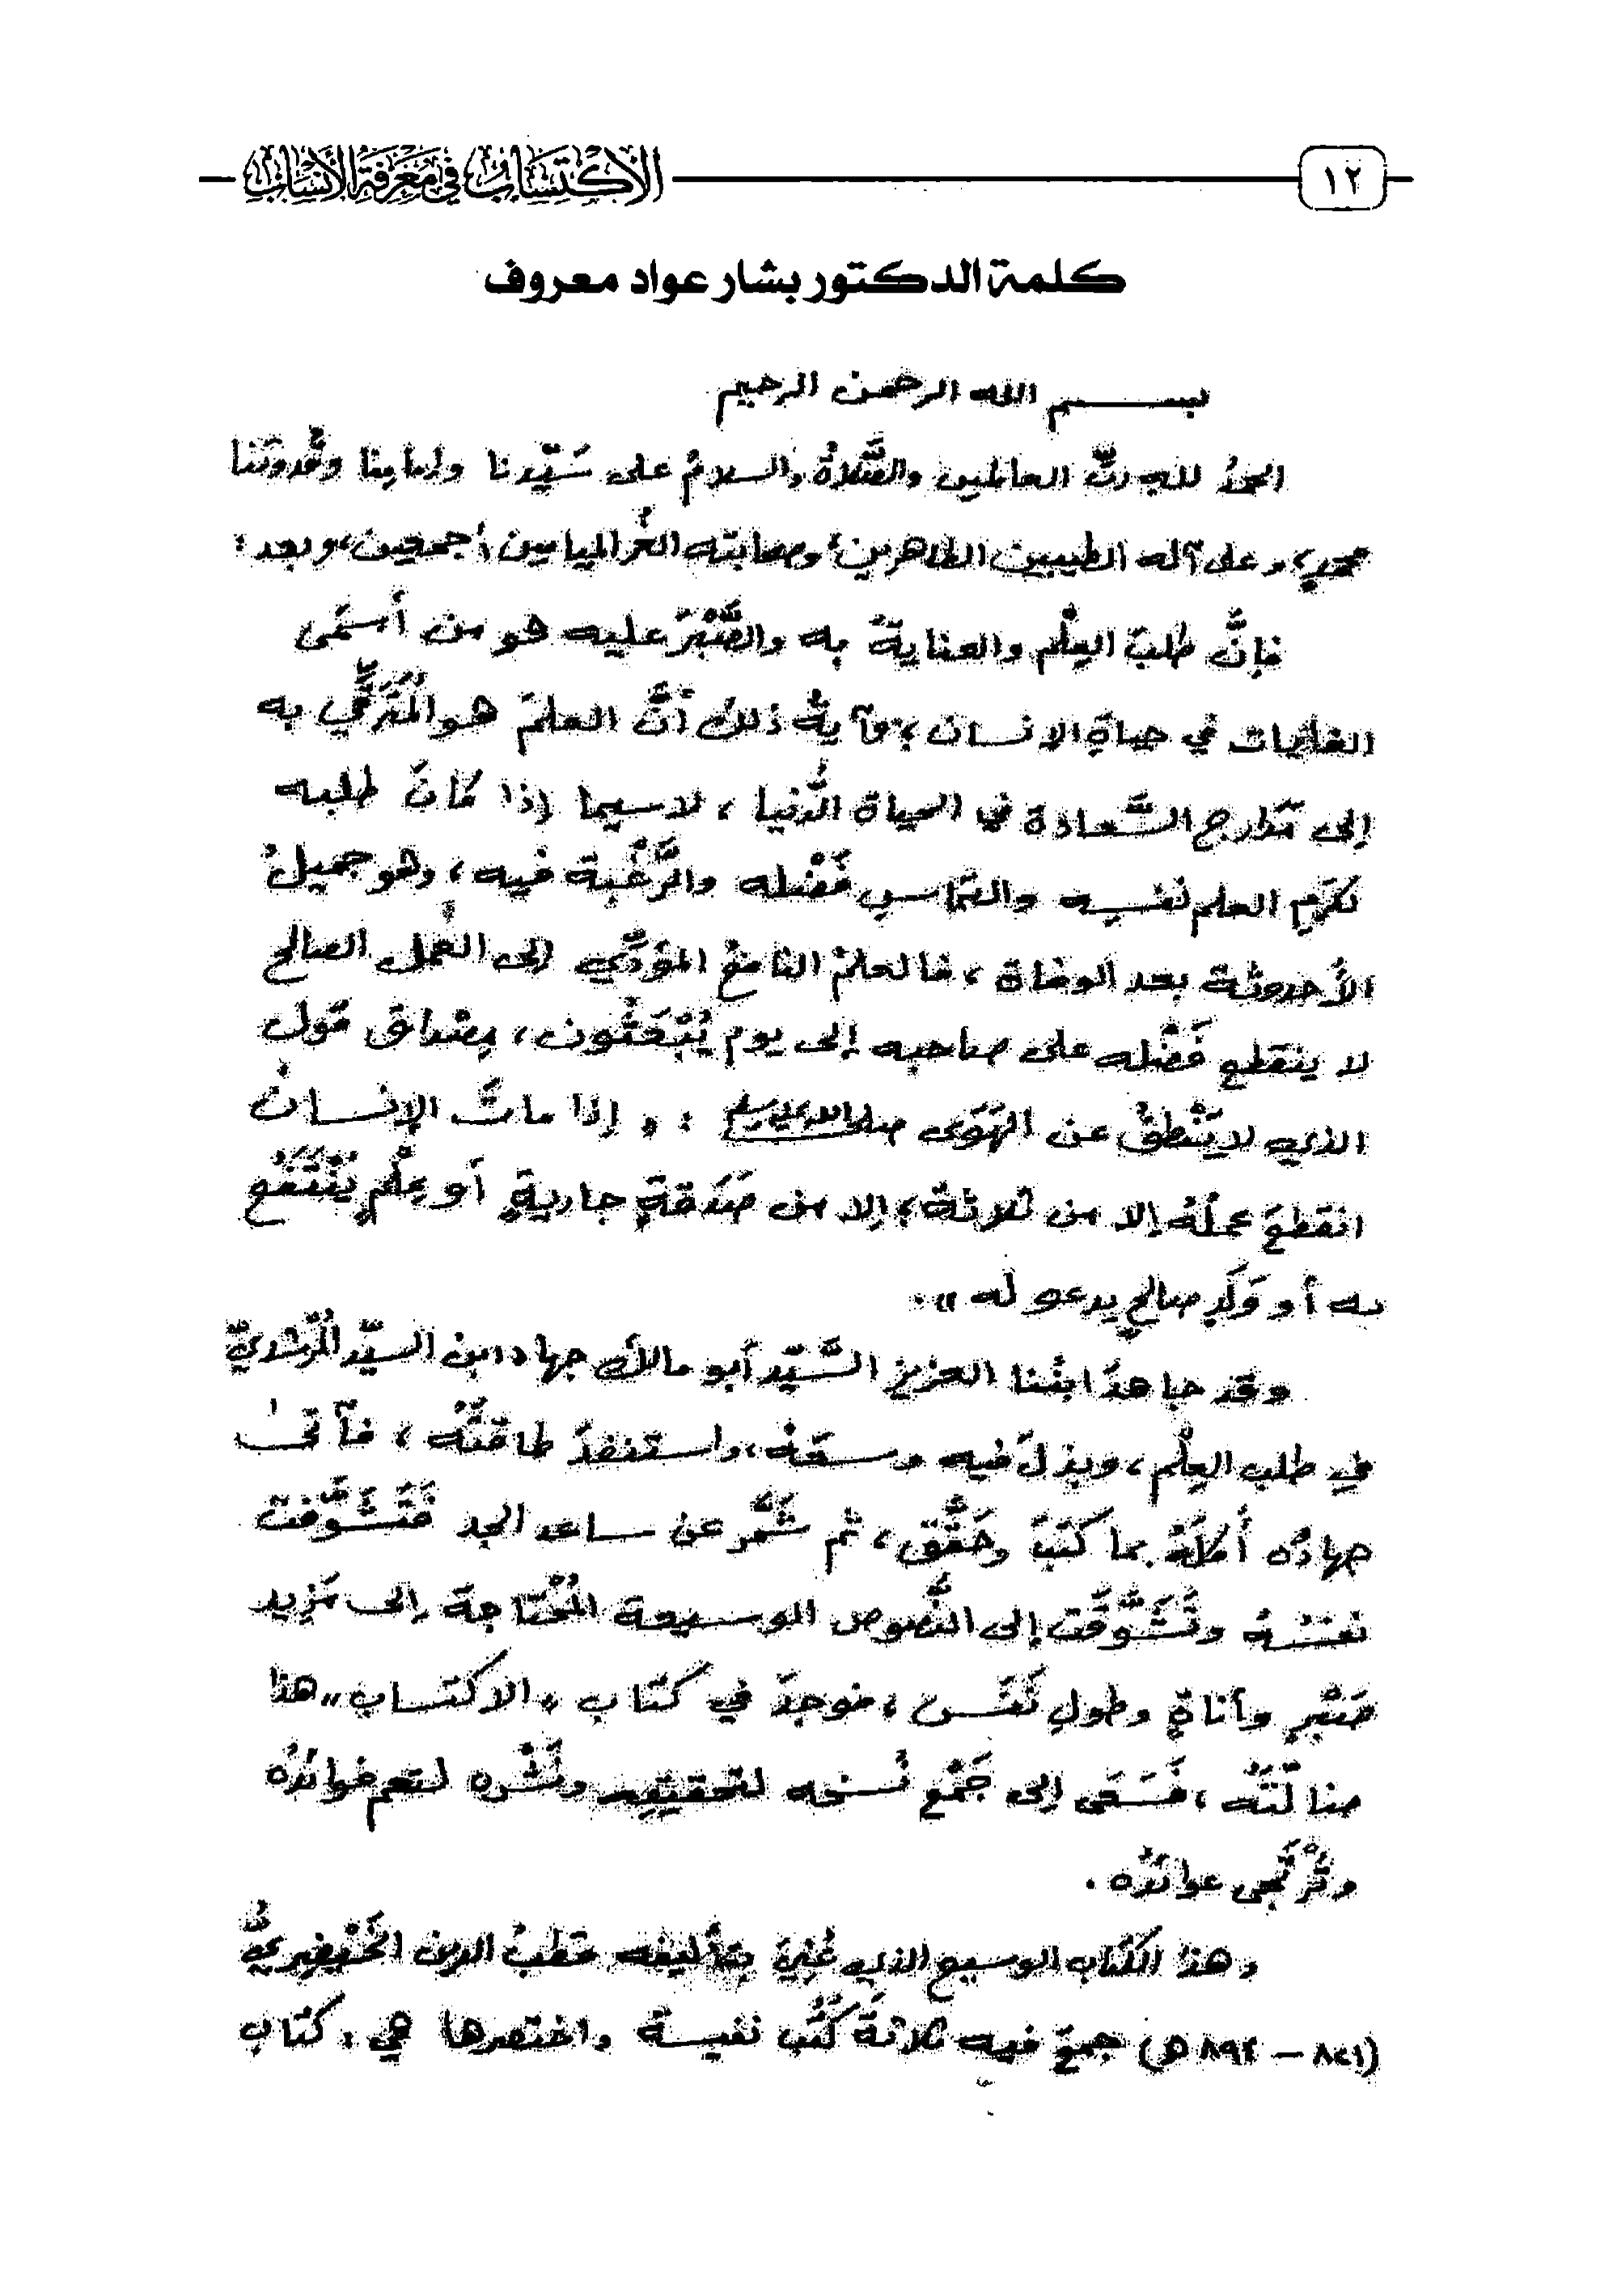 ١٢
الاكتساب في معرفة الأنساب
كلمة الدكتور بشار عواد معروف
بســـــم الله الرحمن الرحيم
الحمدُ للهِ ربِّ العالمين والصَّلاةُ والسلامُ على سَيِّدنا وإمامِنا وقُدوتنا
محمدٍ، وعلى آله الطيبين الطاهرين، وصحابته الغُر الميامين أجمعين، وبعد:
فإنَّ طلبَ العِلْم والعنايةَ به والصَّبْرَ عليه هو من أسمَى
الغايات في حياةِ الإنسان، وآيةُ ذلك أنَّ العلمَ هو المُتَرَقَّي به
إلى مَدَارج السَّعادة في الحياة الدُّنيا، لا سيما إذا كانَ طلبه
لكَرَمِ العلم نفسِه والتماسِ فَضْله والرَّغْبة فيه، وهو جميلُ
الأُحدوثة بعد الوفاة، فالعلمُ النافعُ المؤدِّي إلى العَمل الصالح
لا ينقطع فَضْله على صاحبه إلى يوم يُبْعَثُون، مِصْداق قول
الذي لا يَنْطقُ عن الهَوَى صلى الله عليه وسلم: «إذا ماتَ الإنسانُ
انقطعَ عملُهُ إلا من ثلاثة، إلا من صَدَقةٍ جاريةٍ أو عِلْمٍ يُنْتَفَع
به أو وَلَدٍ صالحٍ يدعو له».
وقد جاهدَ ابنُنا العزيز السَّيِّد أبو مالك جهاد ابن السيِّد المُرْشديّ
في طلب العِلْم، وبذلَ فيه وسعَهُ، واستنفدَ طاقتَهُ، فآتى
جهادُه أُكلَهُ بما كَتَبَ وحَقَّق، ثم شَمَّر عن ساعد الجد فَتَشَوَّفت
نفسُهُ وتَشَوَّقت إلى النُّصوص الوسيعة المُحْتاجة إلى مَزيد
صَبْرٍ وأناةٍ وطولِ نَفَس، فوجدَ في كتاب «الاكتساب» هذا
ضالَّتَهُ، فسَعَى إلى جَمْع نُسخه لتحقيقِه ونَشْره لتعم فوائدُه
وتُرْتَجى عوائدُه.
وهذا الكتاب الوسيع الذي عُنِيَ بتأليفه قطبُ الدين الخَيْضِريُّ
(٨٢١ - ٨٩٤ هـ) جمعَ فيه ثلاثةَ كُتُب نفيسة واختصرها هي: كتاب